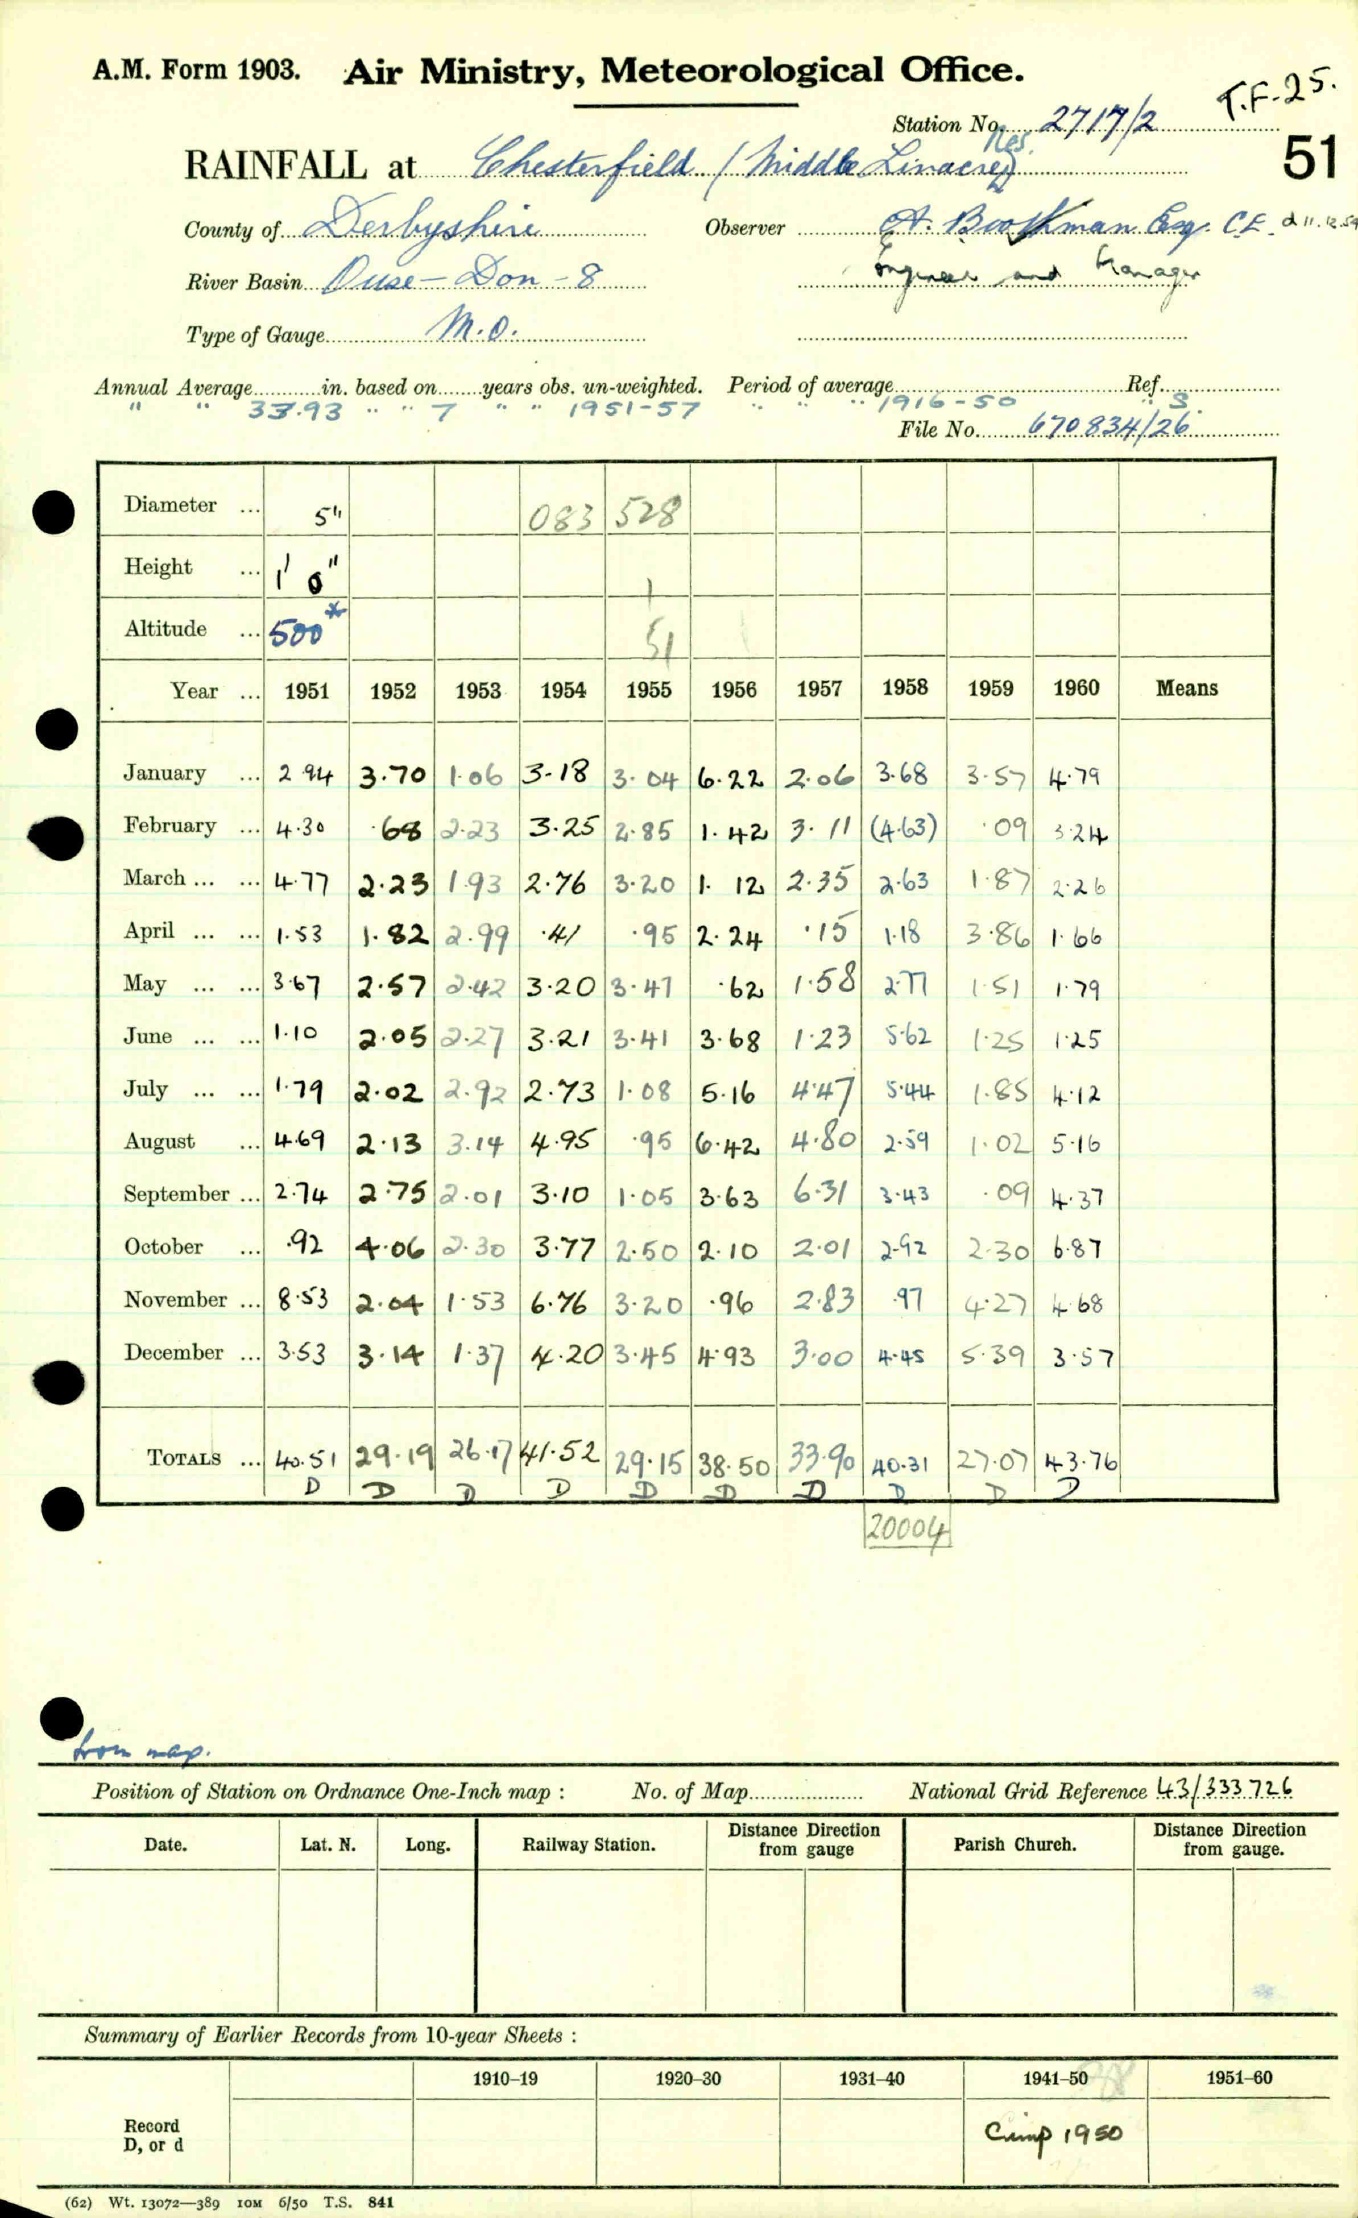 A.M. Form 1903. Air Ministry, Meteorological Office.
T.F.25.
Station No. 2717/2
51
RAINFALL at Chesterfield (Middle Linacre Res.)
County of Derbyshire Observer A. Bookman Esq. C.E. d 11.12.59
River Basin Ouse - Don - 8 Engineer and Manager
Type of Gauge M.O.
Annual Average in. based on years obs. un-weighted. Period of average Ref.
" " 33.93 " " 7 " " 1951-57 " " " 1916-50 " S.
File No. 670834/26
Diameter ... 5" 083 528
Height ... 1' 0" 1
Altitude ... 500* 51
Year ... 1951 1952 1953 1954 1955 1956 1957 1958 1959 1960 Means
January ... 2.94 3.70 1.06 3.18 3.04 6.22 2.06 3.68 3.57 4.79
February ... 4.30 .68 2.23 3.25 2.85 1.42 3.11 (4.63) .09 3.24
March ... ... 4.77 2.23 1.93 2.76 3.20 1.12 2.35 2.63 1.87 2.26
April ... ... 1.53 1.82 2.99 .41 .95 2.24 .15 1.18 3.86 1.66
May ... ... 3.67 2.57 2.42 3.20 3.47 .62 1.58 2.77 1.51 1.79
June ... ... 1.10 2.05 2.27 3.21 3.41 3.68 1.23 5.62 1.25 1.25
July ... ... 1.79 2.02 2.92 2.73 1.08 5.16 4.47 5.44 1.85 4.12
August ... 4.69 2.13 3.14 4.95 .95 6.42 4.80 2.59 1.02 5.16
September ... 2.74 2.75 2.01 3.10 1.05 3.63 6.31 3.43 .09 4.37
October ... .92 4.06 2.30 3.77 2.50 2.10 2.01 2.92 2.30 6.87
November ... 8.53 2.04 1.53 6.76 3.20 .96 2.83 .97 4.27 4.68
December ... 3.53 3.14 1.37 4.20 3.45 4.93 3.00 4.45 5.39 3.57
TOTALS ... 40.51 29.19 26.17 41.52 29.15 38.50 33.90 40.31 27.07 43.76
D D D D D D D D D D
20004
from map.
Position of Station on Ordnance One-Inch map : No. of Map National Grid Reference 43/333726
Date. Lat. N. Long. Railway Station. Distance from Direction gauge Parish Church. Distance from Direction gauge.
Summary of Earlier Records from 10-year Sheets :
1910–19 1920–30 1931–40 1941–50 1951–60
Record D, or d 1950
(62) Wt. 13072—389 10M 6/50 T.S. 841